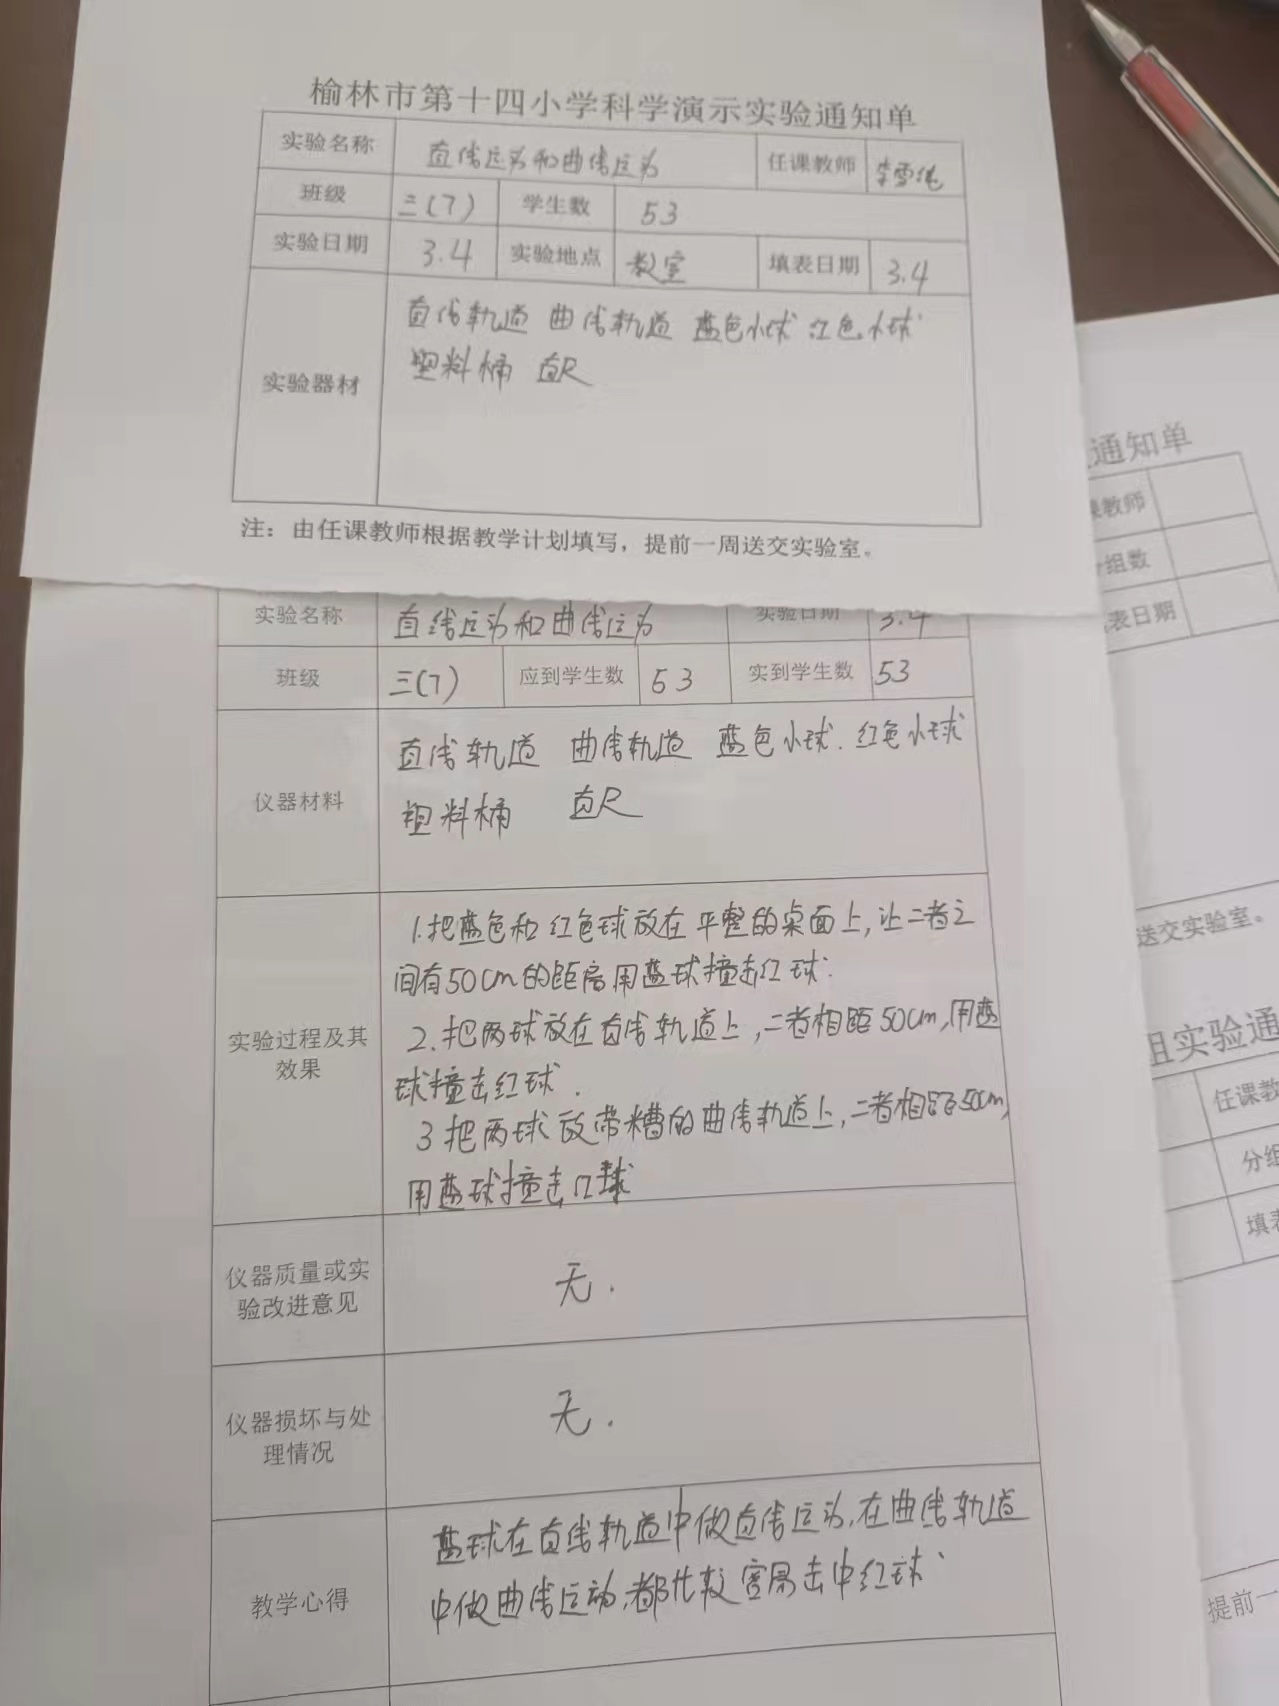 榆林市第十四小学科学演示实验通知单
实验名称 直线运动和曲线运动 任课教师 李雪纯
班级 三(7) 学生数 53
实验日期 3.4 实验地点 教室 填表日期 3.4
实验器材 直线轨道 曲线轨道 蓝色小球 红色小球
塑料桶 直尺
注：由任课教师根据教学计划填写，提前一周送交实验室。
实验名称 直线运动和曲线运动 实验日期 3.4
班级 三(7) 应到学生数 53 实到学生数 53
仪器材料 直线轨道 曲线轨道 蓝色小球.红色小球
塑料桶 直尺
实验过程及其
效果
1.把蓝色和红色球放在平整的桌面上,让二者之
间有50cm的距离用蓝球撞击红球.
2.把两球放在直线轨道上,二者相距50cm,用蓝
球撞击红球.
3把两球放带槽的曲线轨道上,二者相距50cm,
用蓝球撞击红球
仪器质量或实
验改进意见
无.
仪器损坏与处
理情况
无.
教学心得
蓝球在直线轨道中做直线运动,在曲线轨道
中做曲线运动,都比较容易击中红球.
通知单
课教师
分组数
表日期
送交实验室。
组实验通
任课教
分组
填表
提前一